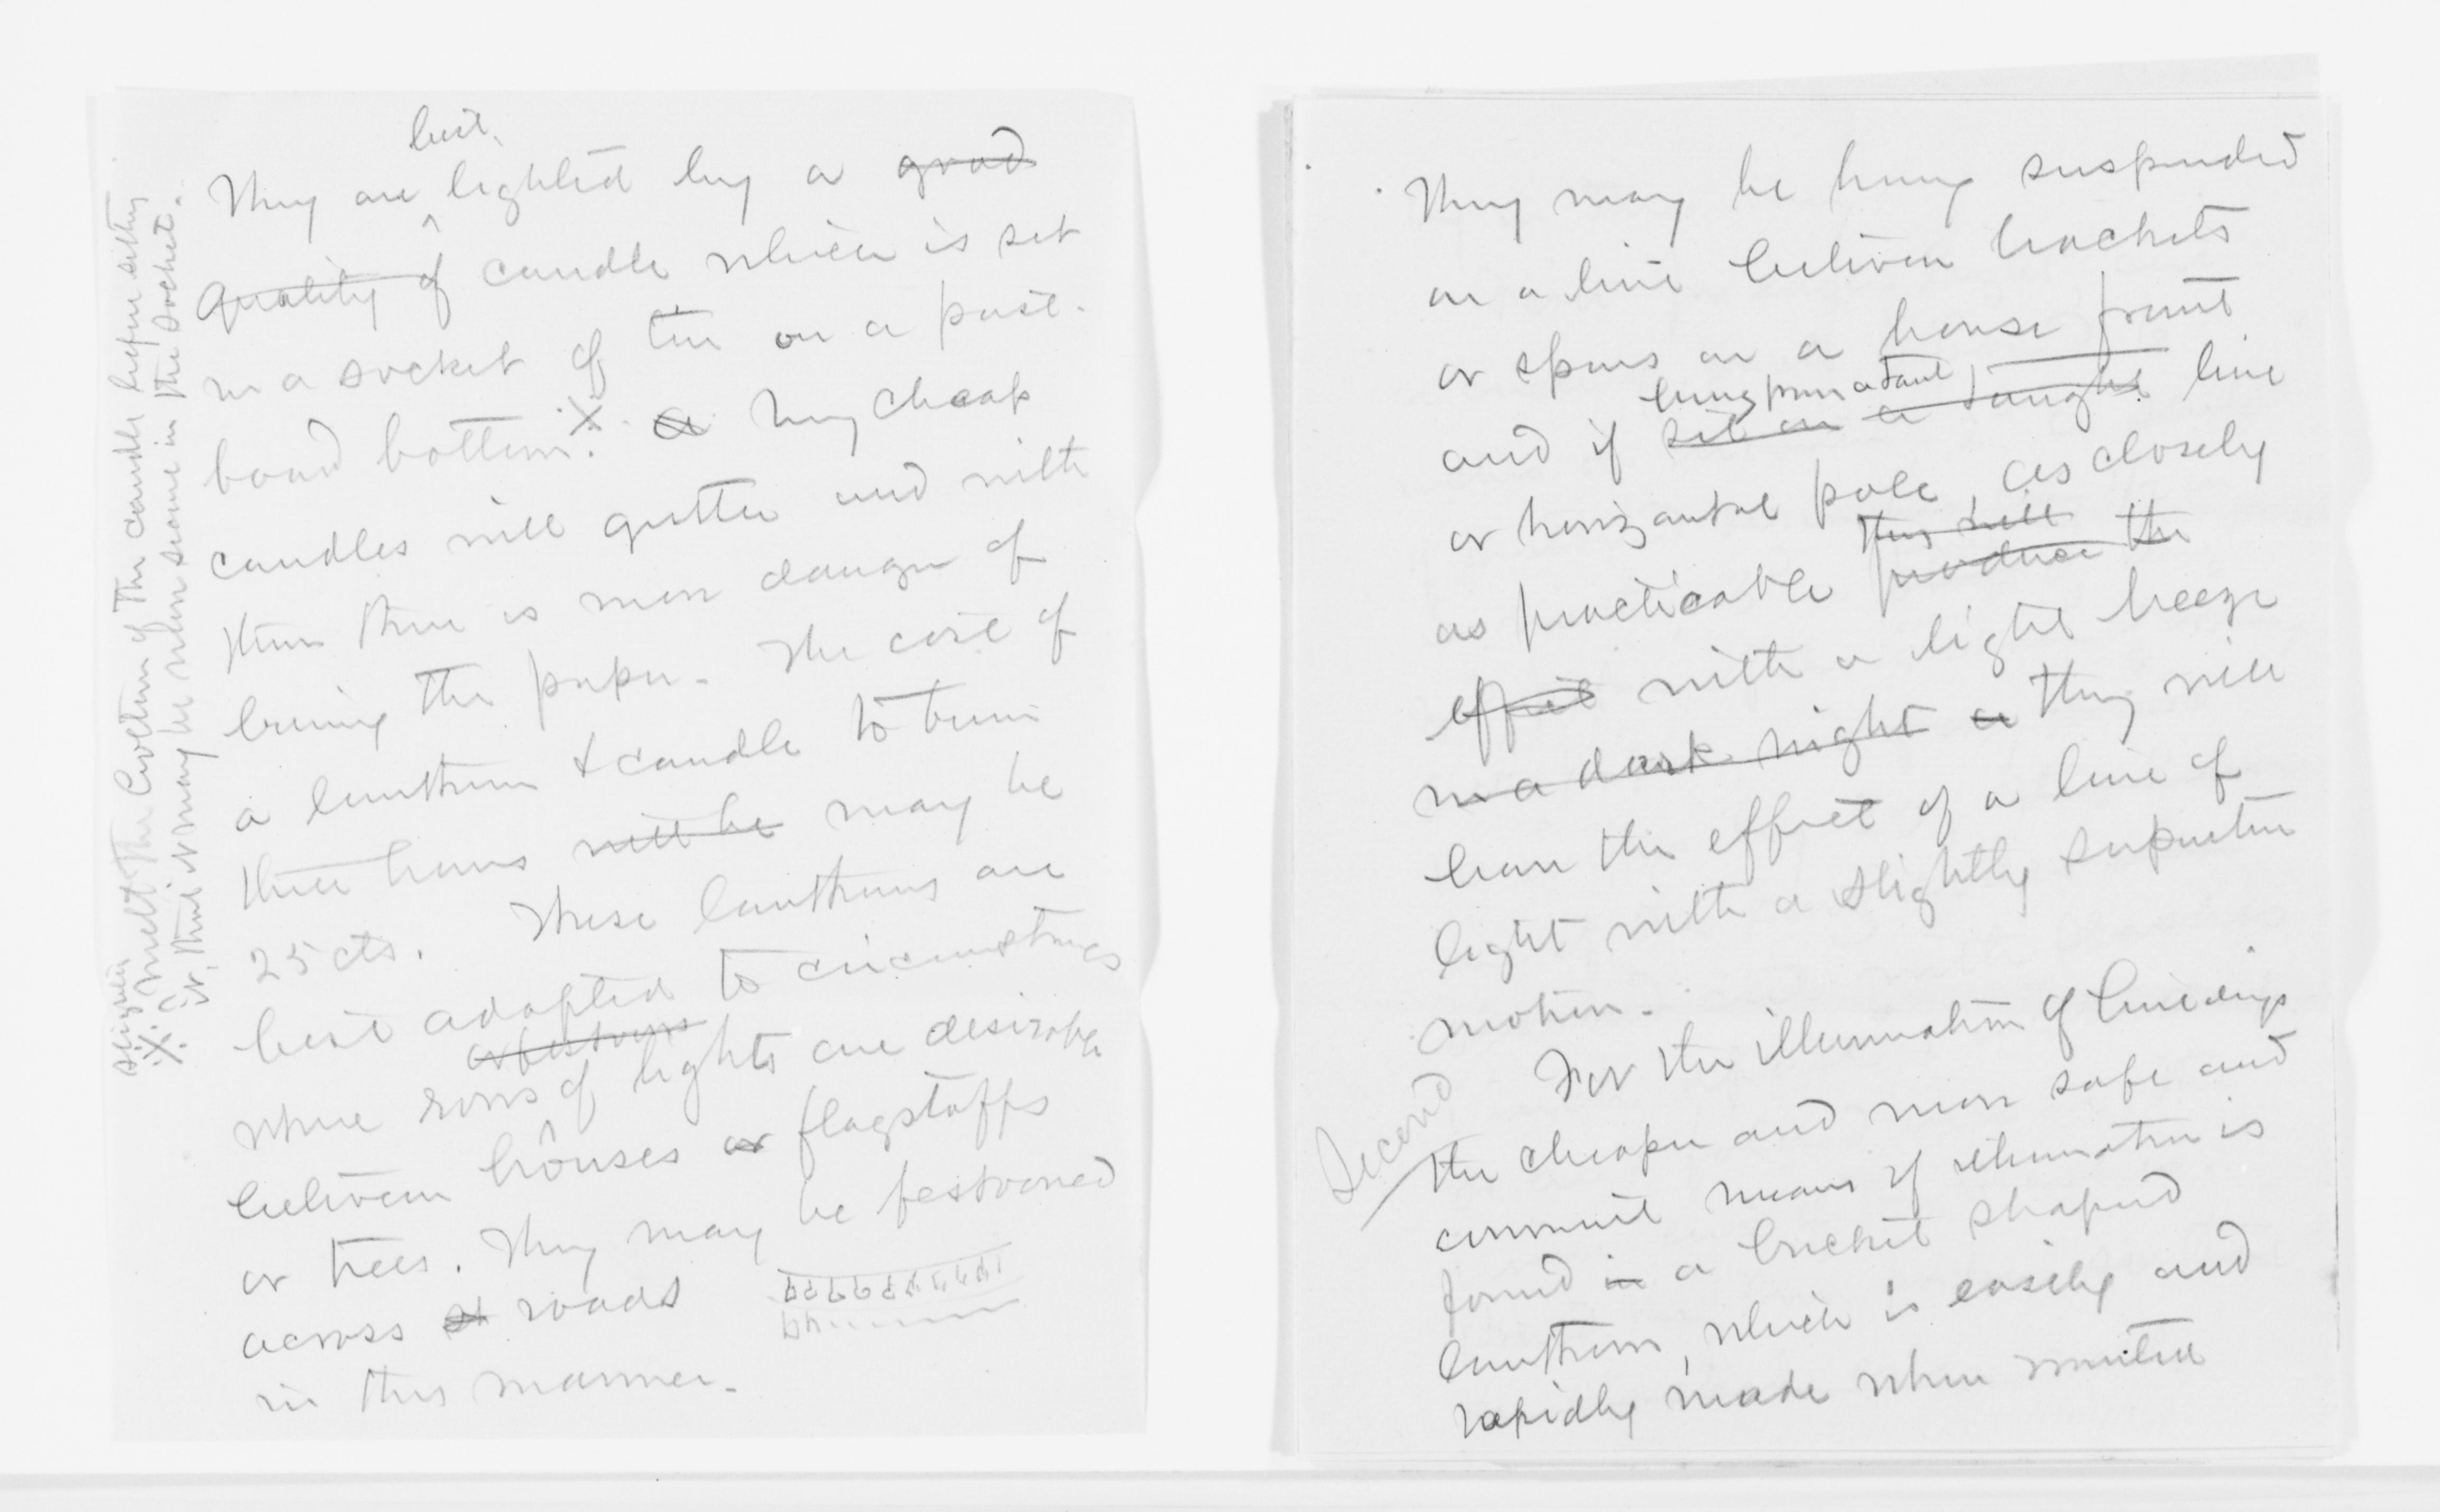 best
They are lighted by a good
quality of candle which is set
in a socket of tin on a paste
board bottom. ※ a Any cheap
candles will gutter and with
them there is more danger of
burning the paper. The cost of
a lanthern & candle to burn
three hours will be may be
25 cts. These lantherns are
best adapted to circumstances
or festoons
where rows of lights are desirable
between houses or flagstaffs
or trees. They may be festooned
across st roads
in this manner.
※ melt the bottom of the candle before sitting
it, that it may be when secure in the socket.
They may be hung suspended
on a line between brackets
or spars on a house front
hung from a taut
and if set on a taught line
or horizontal pole, as closely
they will
as practicable produce the
effect with a light breeze
in a dark night a they will
have the effect of a line of
light with a slightly serpentine
motion.
Second
For the illumination of buildings
the cheaper and more safe and
convenient means of illumination is
found in a bucket shaped
lanthern, which is easily and
rapidly made when wanted